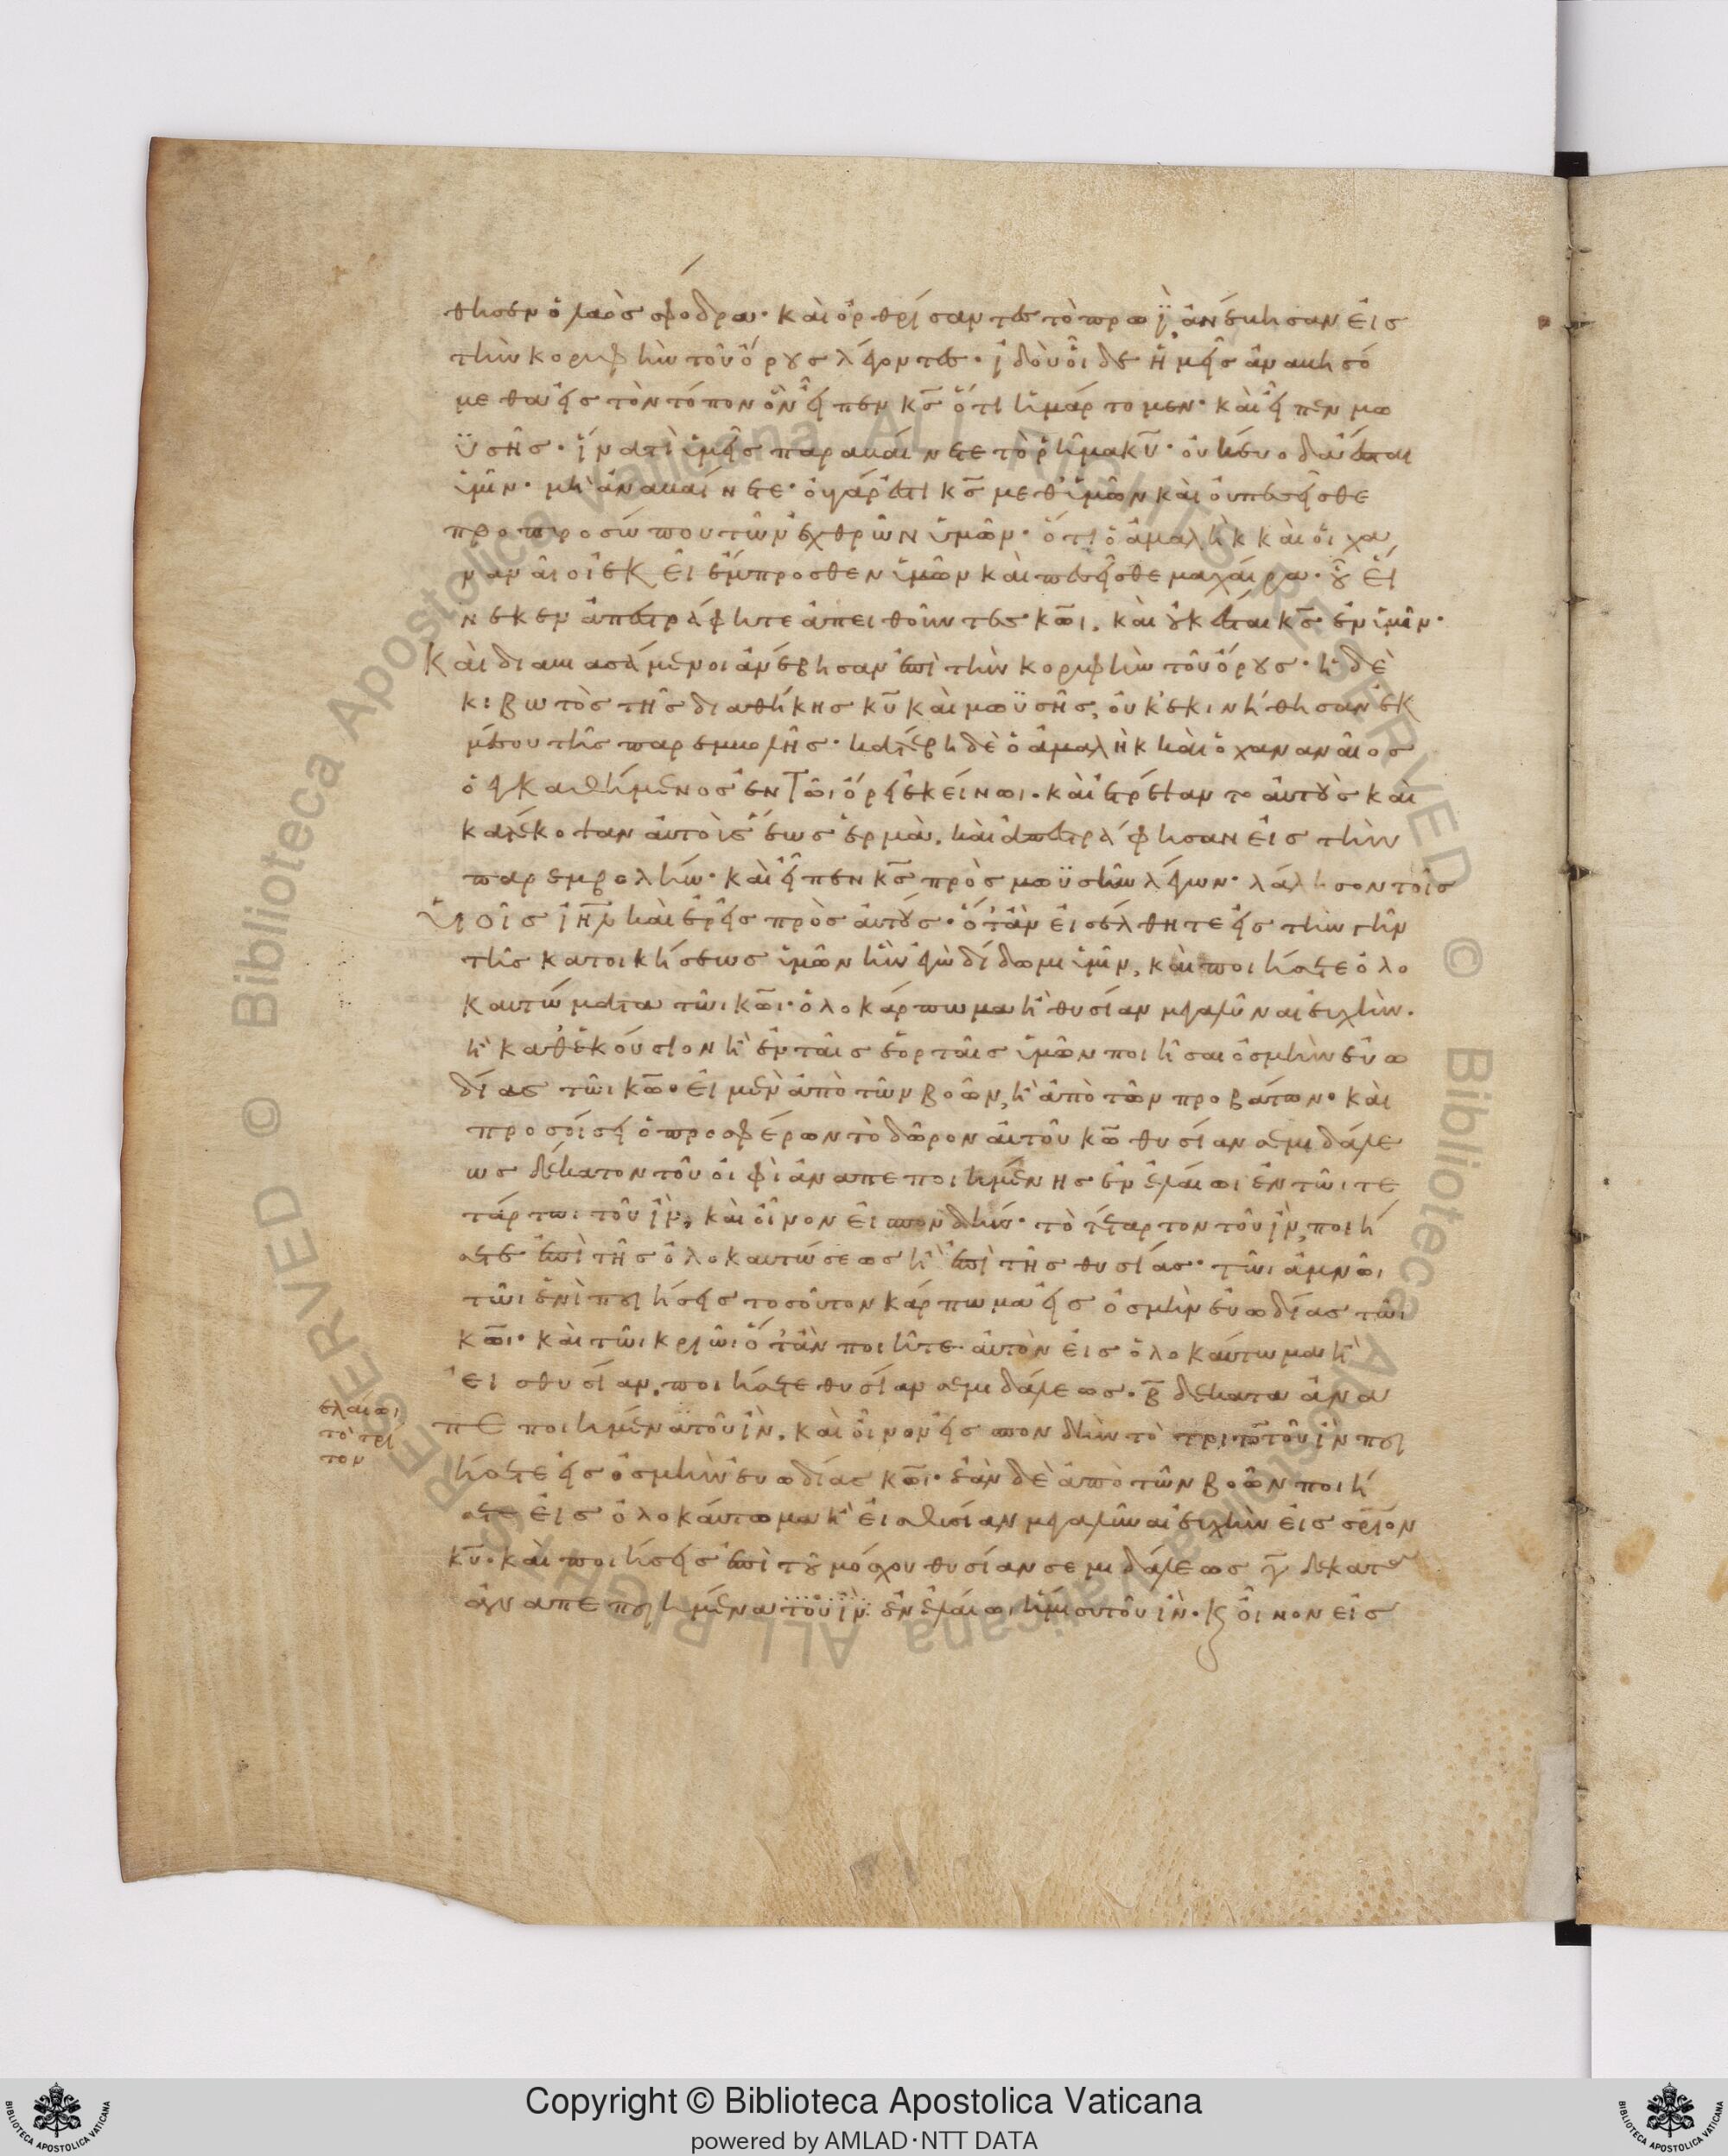 θησεν ὁ λαὸς σφόδρα· καὶ ὀρθρίσαντες τὸ πρωῒ, ἀνέβησαν εἰς
τὴν κορυφὴν τοῦ ὄρους λέγοντες· ἰδοὺ οἵδε ἡμεῖς ἀναβησό
μεθα εἰς τὸν τόπον ὃν εἶπεν κ̅ς̅ ὅτι ἡμάρτομεν· καὶ εἶπεν μω
ϋσῆς· ἵνα τί ὑμεῖς παραβαίνετε τὸ ῥῆμα κ̅υ̅· οὐκ εὔοδα ἔσται
ὑμῖν· μὴ ἀναβαίνετε· οὐ γάρ ἐστι κ̅ς̅ μεθ' ὑμῶν καὶ οὐ πεσεῖσθε
πρὸ προσώπου τῶν ἐχθρῶν ὑμῶν· ὅτι ὁ ἀμαλὴκ καὶ οἱ χα
ναναῖοι ἐκεῖ ἔμπροσθεν ὑμῶν καὶ πεσεῖσθε μαχαίρα· οὗ εἵ
νεκεν ἀπεστράφητε ἀπειθοῦντες κ̅ω̅ι, καὶ οὐκ ἔσται κ̅ς̅ ἐν ὑμῖν·
Καὶ διαβιασάμενοι ἀνέβησαν ἐπὶ τὴν κορυφὴν τοῦ ὄρους· ἡ δὲ
κιβωτὸς τῆς διαθήκης κ̅υ̅ καὶ μωϋσῆς, οὐκ ἐκινήθησαν ἐκ
μέσου τῆς παρεμβολῆς· κατέβη δὲ ὁ ἀμαλὴκ καὶ ὁ χαναναῖος
ὁ ἐγκαθήμενος ἐν τῶι ὄρει ἐκείνωι· καὶ ἐτρέψαντο αὐτοὺς καὶ
κατέκοψαν αὐτοὺς ἕως ἑρμὰ, καὶ ἀπεστράφησαν εἰς τὴν
παρεμβολήν· καὶ εἶπεν κ̅ς̅ πρὸς μωϋσῆν λέγων· λάλησον τοῖς
Υἱοῖς ι̅η̅λ̅ καὶ ἐρεῖς πρὸς αὐτούς· ὅταν εἰσέλθητε εἰς τὴν γῆν
τῆς κατοικήσεως ὑμῶν ἣν ἐγὼ δίδωμι ὑμῖν, καὶ ποιήσετε ὁλο
καυτώματα τῶι κ̅ω̅ι· ὁλοκάρπωμα ἢ θυσίαν μεγαλῦναι εὐχὴν·
ἢ καθ' ἑκούσιον ἢ ἐν ταῖς ἑορταῖς ὑμῶν ποιῆσαι ὀσμὴν εὐω
δίας τῶι κ̅ω̅· εἰ μὲν ἀπὸ τῶν βοῶν, ἢ ἀπὸ τῶν προβάτων· καὶ
προσοίσει ὁ προσφέρων τὸ δῶρον αὐτοῦ κ̅ω̅ θυσίαν σεμιδάλε
ως δέκατον τοῦ οἰφὶ ἀναπεποιημένης ἐν ἐλαίωι ἐν τῶι τε
τάρτωι τοῦ ἲν, καὶ οἶνον εἰ σπονδὴν· τὸ τέταρτον τοῦ ἲν, ποιή
σετε ἐπὶ τῆς ὁλοκαυτώσεως ἢ ἐπὶ τῆς θυσίας· τῶι ἀμνῶι
τῶι ἑνὶ ποιήσεις τοσοῦτον κάρπωμα εἰς ὀσμὴν εὐωδίας τῶι
κ̅ω̅ι· καὶ τῶι κριῶι ὅταν ποιῆτε αὐτὸν εἰς ὁλοκαύτωμα ἢ
εἰς θυσίαν, ποιήσετε θυσίαν σεμιδάλεως· β̅ δέκατα ἀνα
πεποιημένα τοῦ ἲν, καὶ οἶνον εἰς σπονδὴν τὸ τρίτο̅ τοῦ ἲν ποι
ήσετε εἰς ὀσμὴν εὐωδίας κ̅ω̅ι· ἐὰν δὲ ἀπὸ τῶν βοῶν ποιή
σετε εἰς ὁλοκαύτωμα ἢ εἰς θυσίαν μεγαλῦναι εὐχὴν εἰς σ̅ρ̅ι̅ον
κ̅υ̅· καὶ ποιήσεις ἐπὶ τοῦ μόσχου θυσίαν σεμιδάλεως γ̅ δέκατα
ἀναπεποιημένα τοῦ ἲν ἐν ἐλαίωι ἥμισυ τοῦ ἲν· ϗ οἶνον εἰς
ελαιωι
τὸ τρί
τον
Copyright © Biblioteca Apostolica Vaticana
powered by AMLAD･NTT DATA